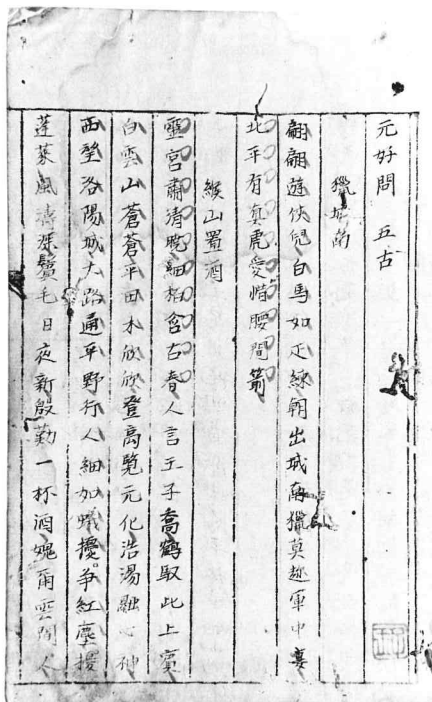 元好問 五古
獵城南
翩翩遊俠兒白馬如疋練朝出城南獵莫趁軍中宴
北平有真虎愛惜腰間箭
緱山置酒
靈宮肅清曉細柏含古春人言王子喬鶴馭此上賓
白雲山蒼蒼平田木欣欣登高覽元化浩蕩融心神
西望洛陽城大路通平野行人細如蟻擾擾爭紅塵
蓬萊風濤深鬢毛日夜新殷勤一杯酒愧爾雲間人